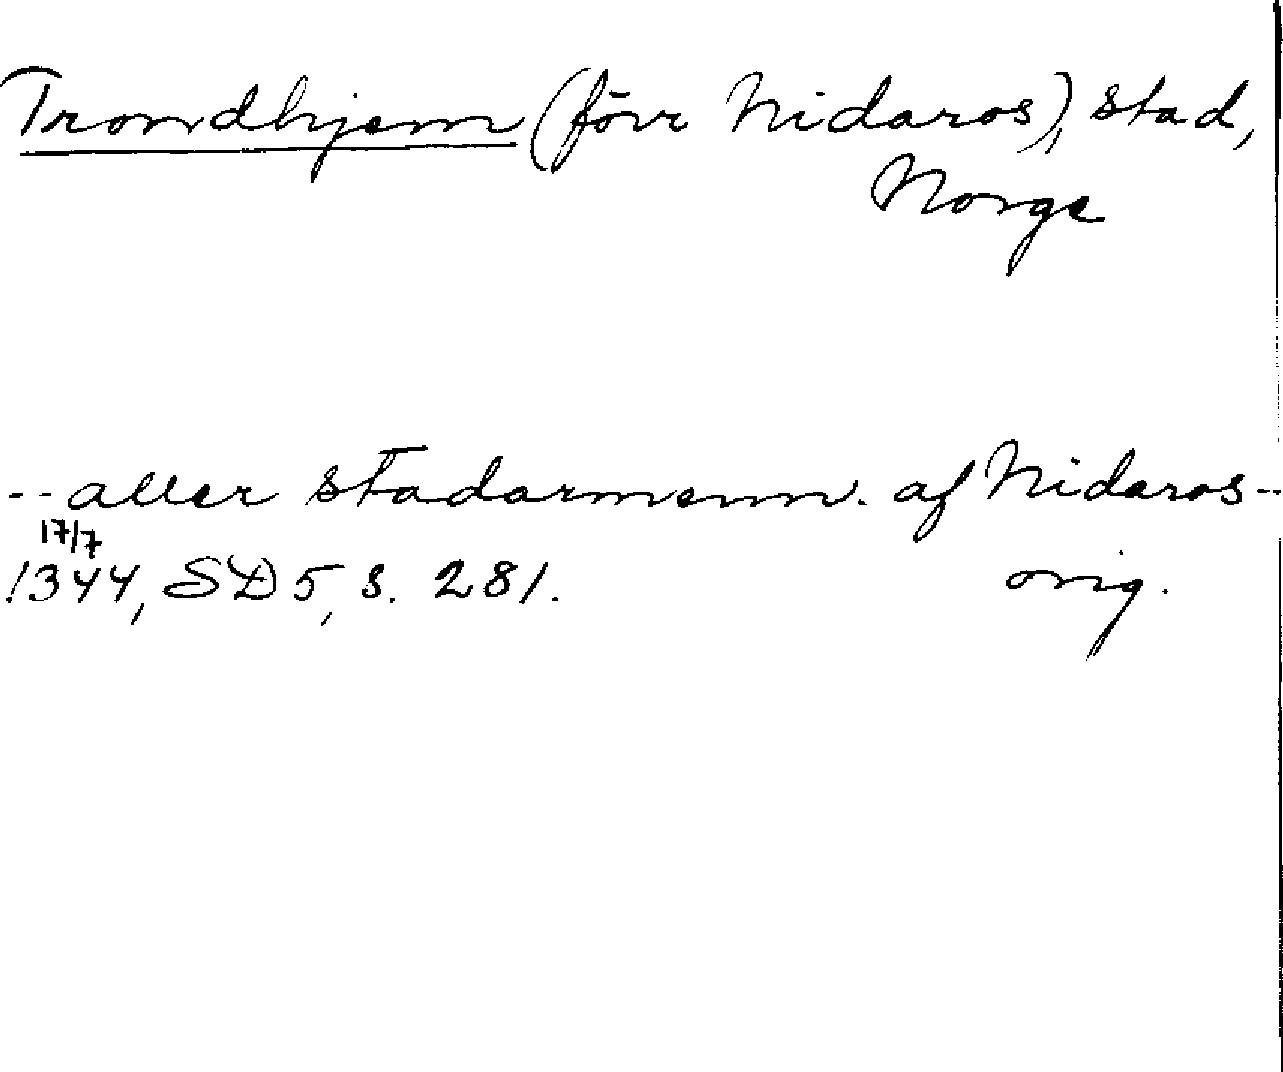 Trondhjem (förr Nidaros), stad,
Norge
-- aller stadarmenn. af Nidaros --
17/7
1344, SD 5, s. 281. orig.